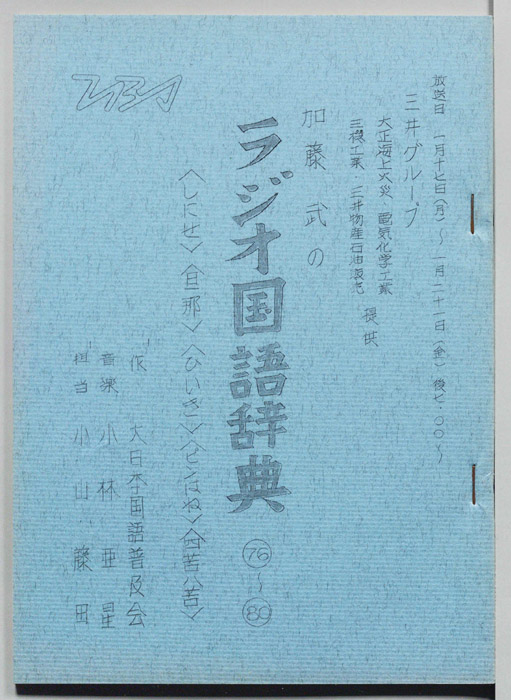 放送日 一月十七日(月)～一月二十一日(金) 後七・〇〇～
三井グループ
大正海上火災 電気化学工業
三機工業 三井物産石油販売
提供
加藤武の
ラジオ国語辞典 76～80
〈しにせ〉〈旦那〉〈ひいき〉〈ピンはね〉〈四苦八苦〉
作 大日本国語普及会
音楽 小林亜星
担当 小山 藤田